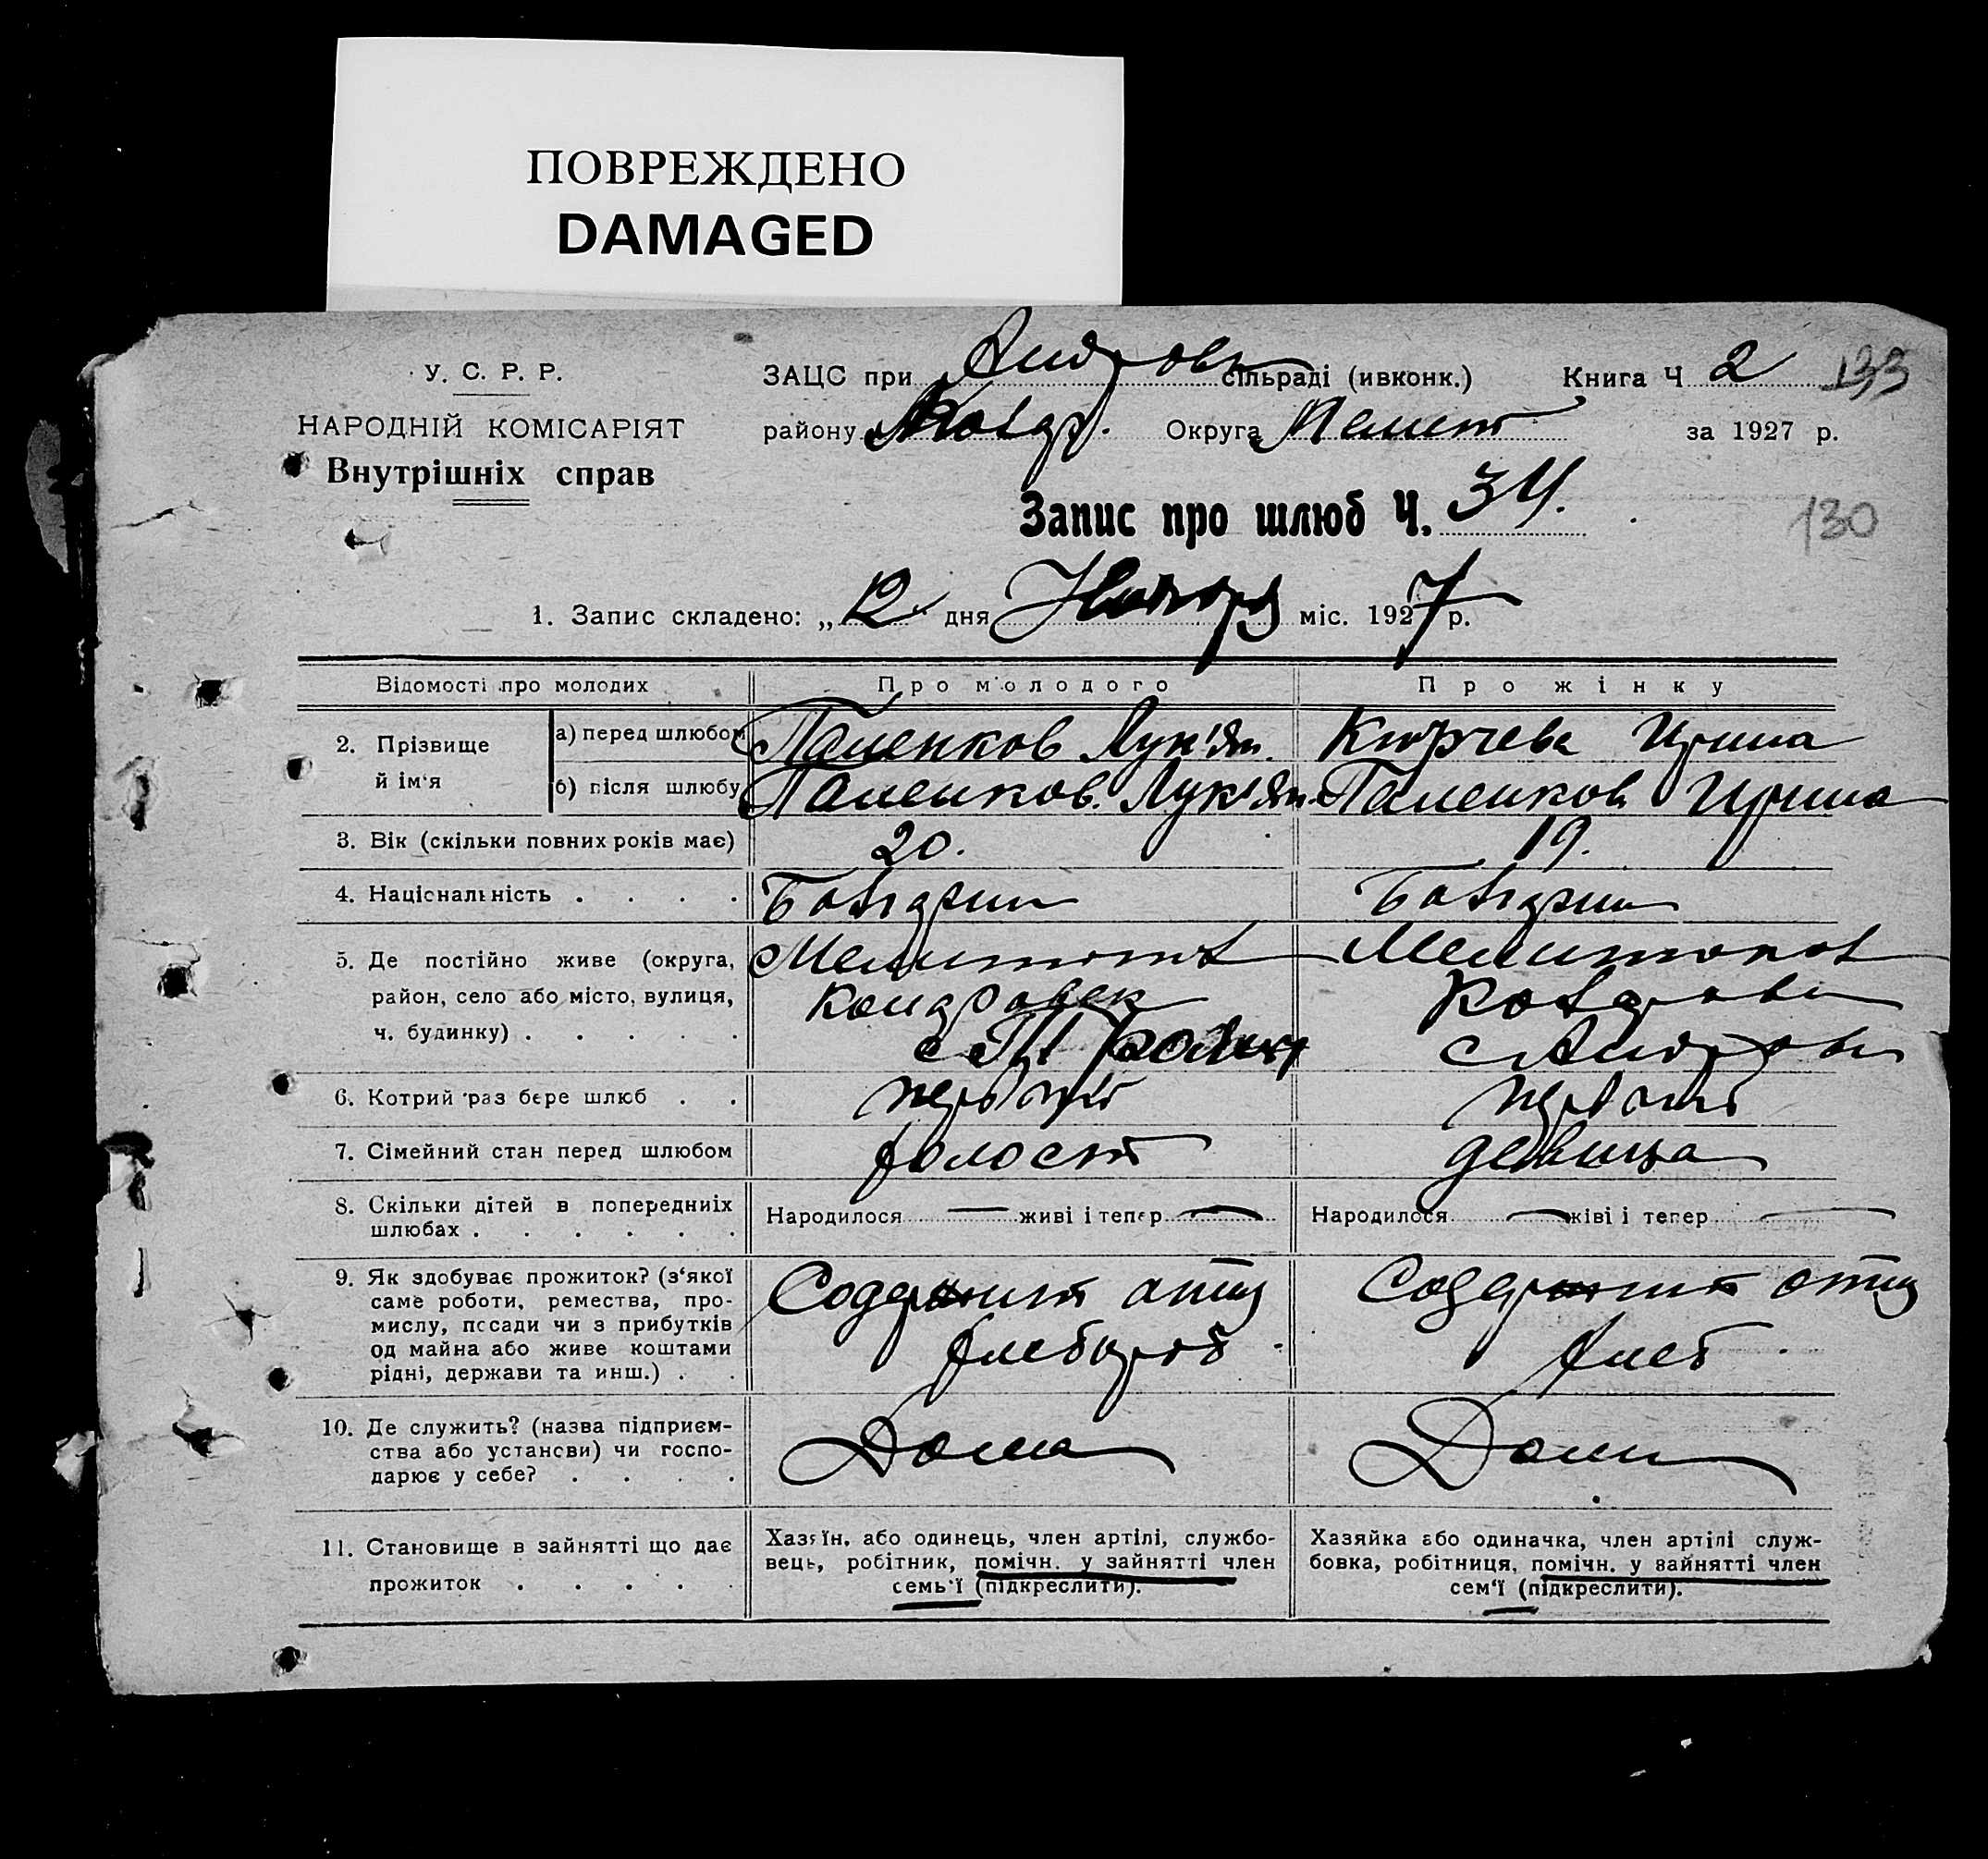 ПОВРЕЖДЕНО
DAMAGED
У. С. Р. Р.
НАРОДНІЙ КОМІСАРІЯТ
Внутрішніх справ
ЗАЦС при Андровк сільраді (ивконк.) Книга Ч 2 133
району Округа Мелит за 1927 р.
Запис про шлюб Ч. 34.
130
1. Запис складено: „12" дня Ноября міс. 1927 р.
Відомості про молодих Про молодого Про жінку
2. Прізвище й ім'я
а) перед шлюбом Паленков Лук'ян. Кюрчева Ирина
б) після шлюбу Паленков. Лук'ян. Паленкова Ирина
3. Вік (скільки повних років має) 20. 19.
4. Національність . . . . Болгарин Болгарин
5. Де постійно живе (округа, район, село або місто, вулиця, ч. будинку) . . . . .
Мелитопол Мелитопол
с Андровк
6. Котрий раз бере шлюб . . первый первый
7. Сімейний стан перед шлюбом холост девица
8. Скільки дітей в попередниіх шлюбах . . . . . .
Народилося — живі і тепер — Народилося — живі і тепер —
9. Як здобуває прожиток? (з'якої саме роботи, ремества, промислу, посади чи з прибутків од майна або живе коштами рідні, держави та инш.) . .
Содержит отец Содержит отец
хлебороб. хлеб.
10. Де служить? (назва підприємства або установи) чи господарює у себе? . . . .
Дома Дома
11. Становище в зайнятті що дає прожиток . . . . .
Хазяїн, або одинець, член артілі, службовець, робітник, помічн. у зайнятті член семь'ї (підкреслити).
Хазяйка або одиначка, член артілі службовка, робітниця, помічн. у зайнятті член сем'ї (підкреслити).